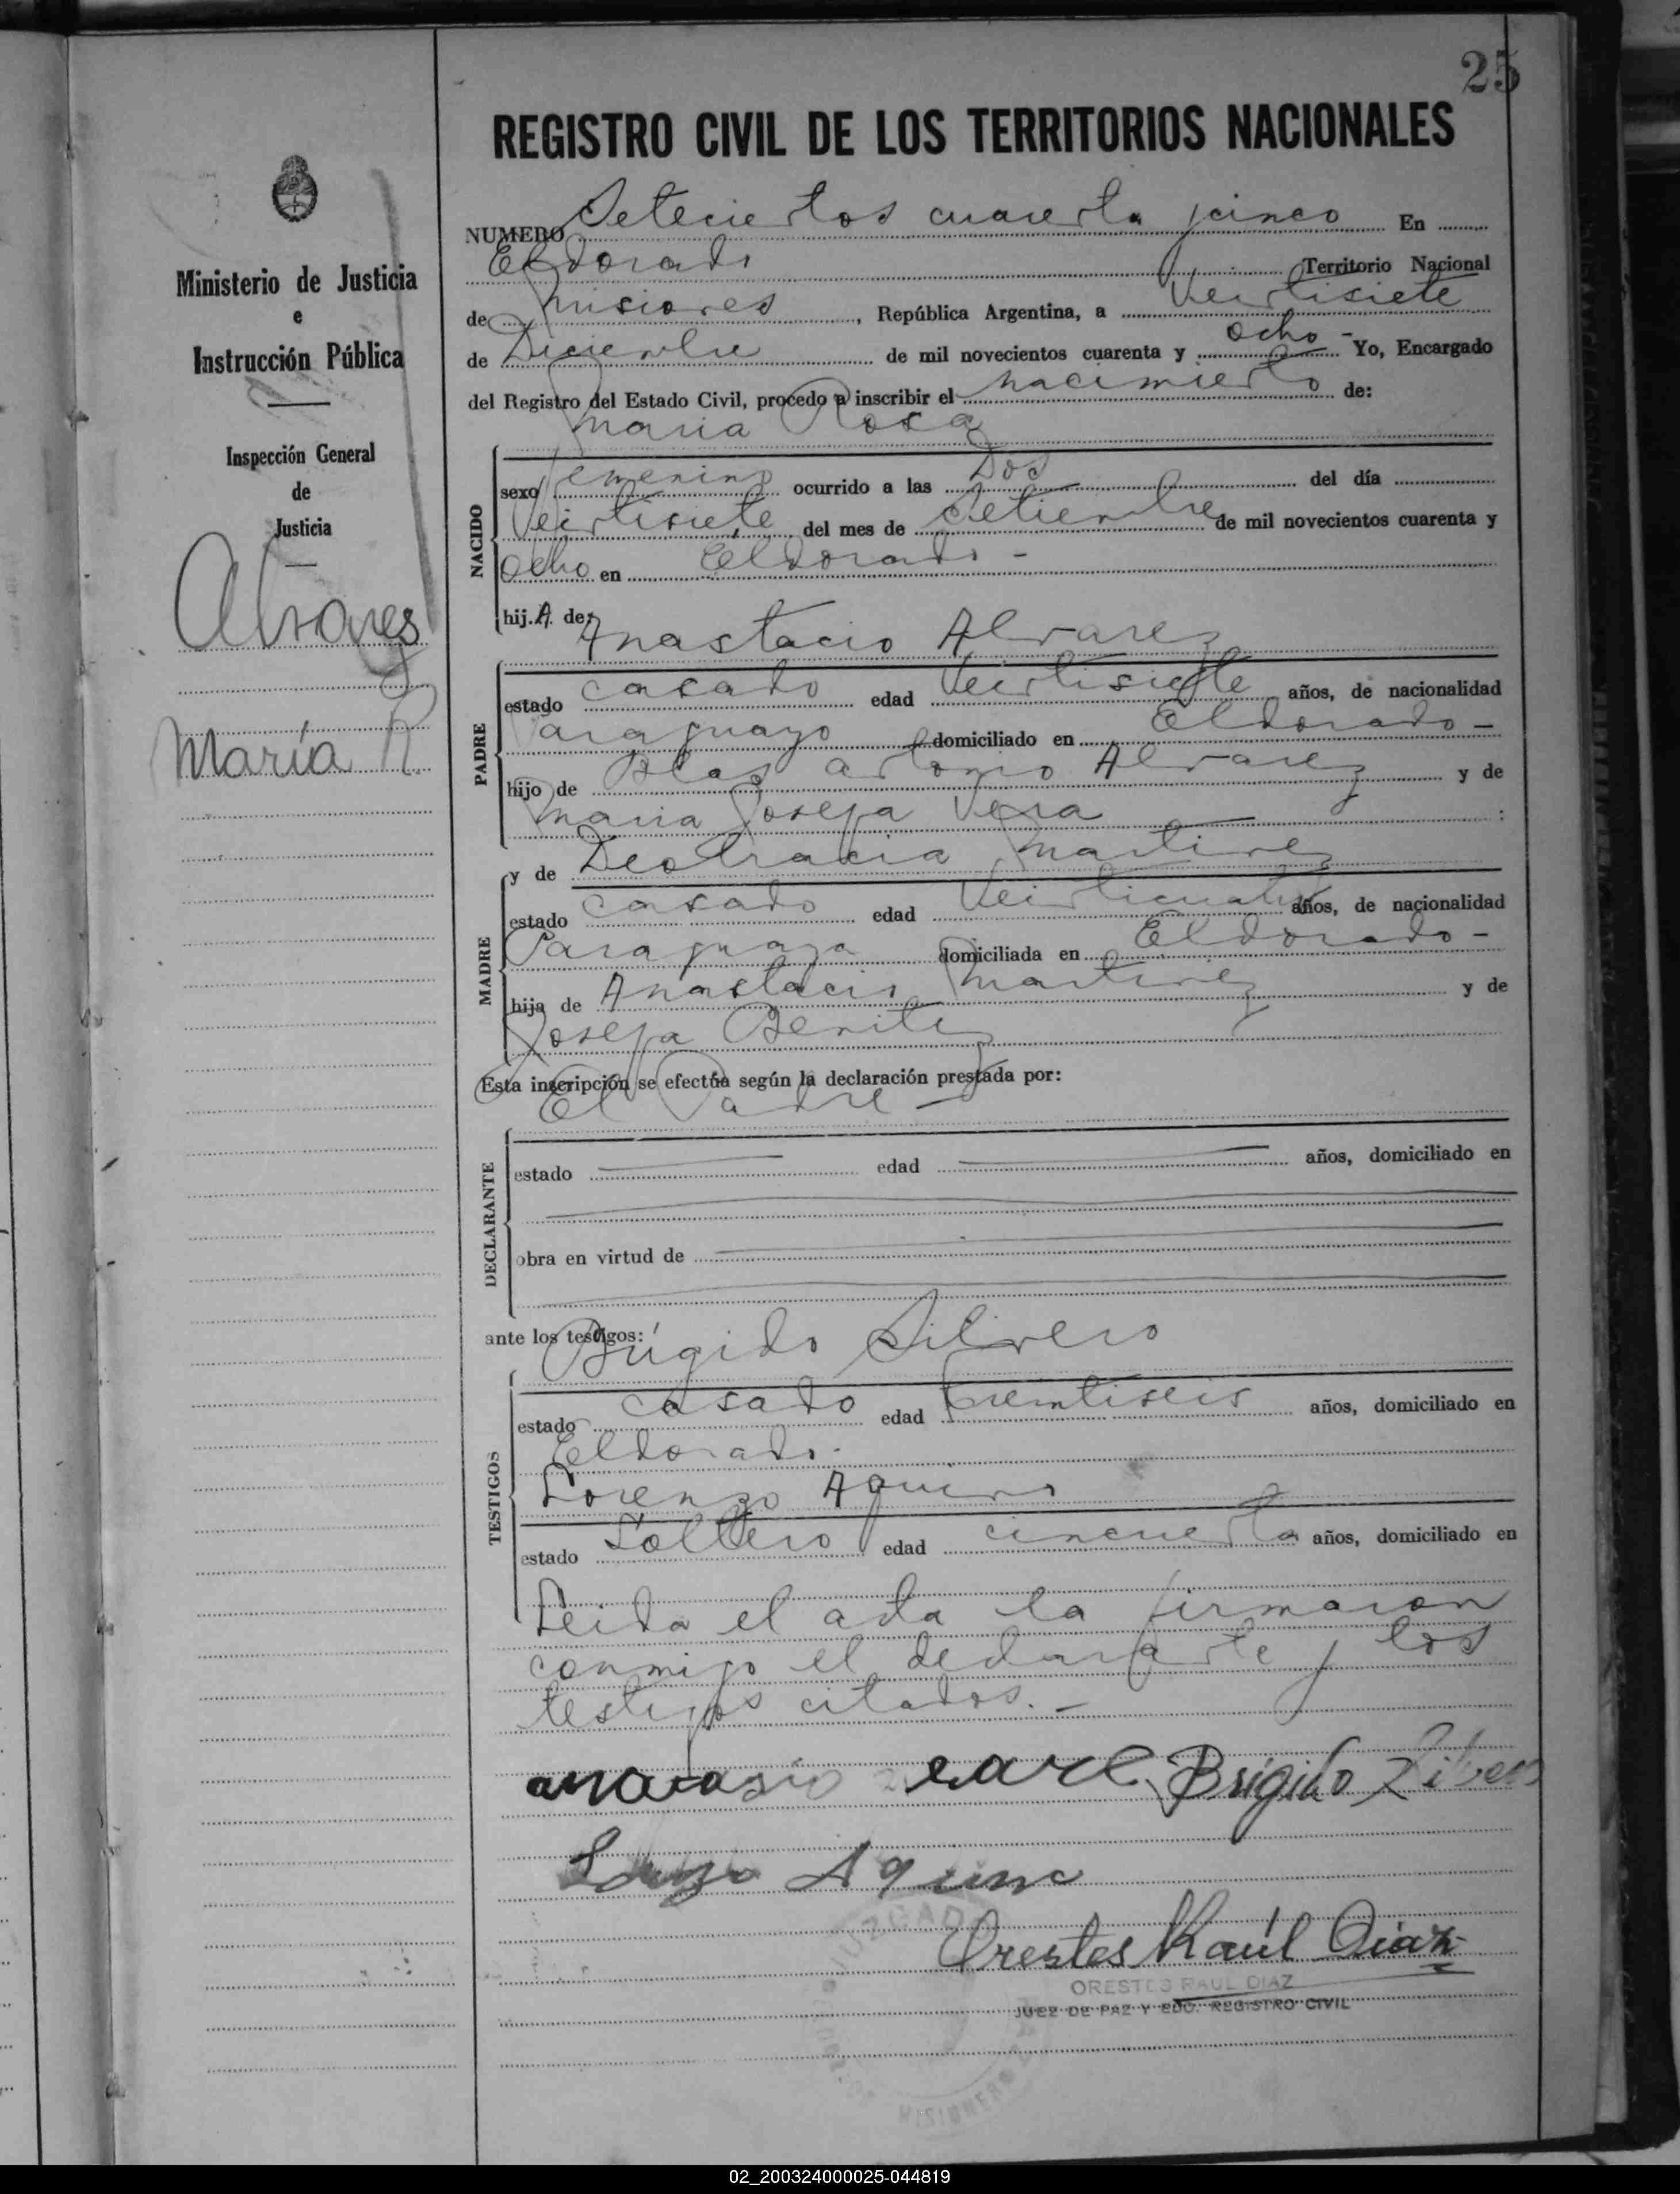 25
REGISTRO CIVIL DE LOS TERRITORIOS NACIONALES
Ministerio de Justicia
e
Instrucción Pública
Inspección General
de
Justicia
Alvarez
María R.
NUMERO Setecientos cuarenta y cinco En
Eldorado Territorio Nacional
de Misiones, República Argentina, a Veintisiete
de Diciembre de mil novecientos cuarenta y ocho - Yo, Encargado
del Registro del Estado Civil, procedo a inscribir el nacimiento de:
Maria Rosa
NACIDO
sexo femenino ocurrido a las Dos del día
Veintisiete del mes de Setiembre de mil novecientos cuarenta y
Ocho en Eldorado -
hij A de: Anastacio Alvarez
PADRE
estado casado edad Veintisiete años, de nacionalidad
Paraguayo domiciliado en Eldorado -
hijo de Blas Antonio Alvarez y de
Maria Josefa Vera
MADRE
y de Deotracia Martinez
estado casado edad Veinticuatro años, de nacionalidad
Paraguaya domiciliada en Eldorado -
hija de Anastacio Martinez y de
Josefa Benitez
Esta inscripción se efectúa según la declaración prestada por:
El Padre -
DECLARANTE
estado edad años, domiciliado en
obra en virtud de
ante los testigos: Brigido Silvero
TESTIGOS
estado casado edad treintiseis años, domiciliado en
Eldorado.
Lorenzo Aquino
estado Soltero edad cincuenta años, domiciliado en
Leida el acta la firmaron
conmigo el declarante y los
testigos citados. -
Brígido Silvero
Aquino
Orestes Raúl Diaz
ORESTES RAUL DIAZ
JUEZ DE PAZ Y EDO. REGISTRO CIVIL
JUZGADO
MISIONES
02_200324000025-044819